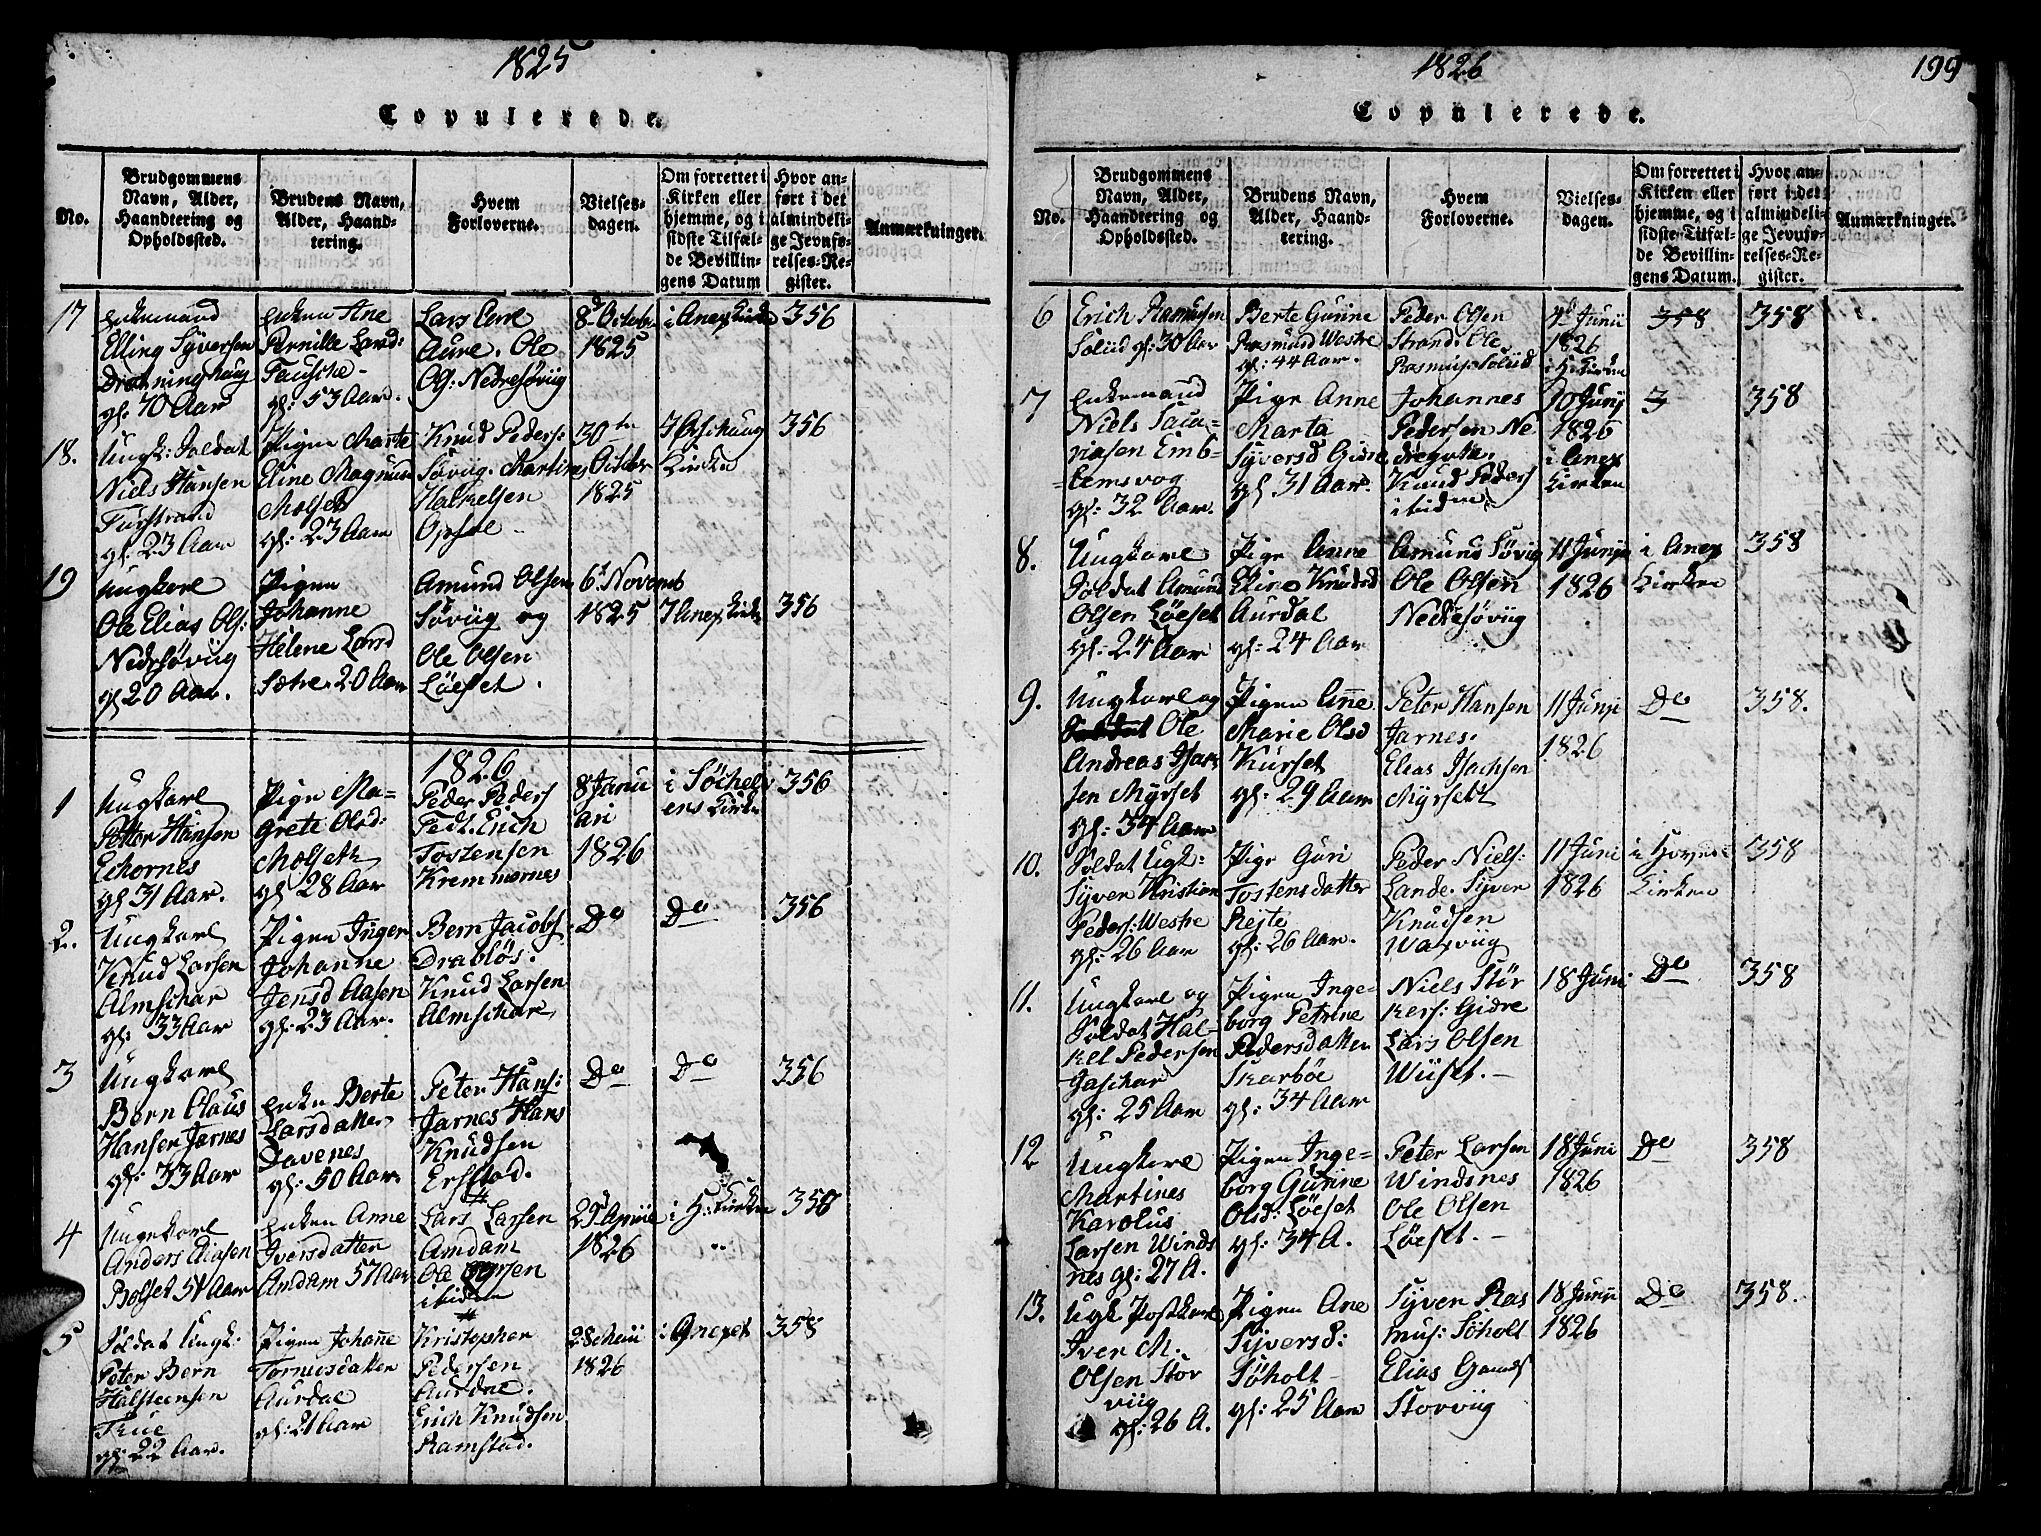 1825
Copulerede.
No.
Brudgommens
Navn, Alder,
Haandtering og
Opholdssted.
Brudens Navn,
Alder, Haand-
tering.
Hvem
Forloverne.
Vielses-
dagen.
Om forrettet i
Kirken eller
hjemme, og i
sidste Tilfæl-
de Bevillin-
gens Datum
Hvor an-
ført i det
almindeli-
ge Jevnfø-
relses-Re-
gister.
Anmærkninger.
17
Enkemand
Elling Syversen
gl: 70 Aar
Enken Ane
Pernille Larsd:
Fausche
gl: 53 Aar.
Lars
Aure. Ole
Ols: Nedresøviig
8d Octobr
1825
i Anex Kirke
356
18.
Ungk: Soldat
Niels Hansen
gl: 23 Aar
Pigen Marte
Eline Magnus
Molset
gl: 23 Aar
Knud Peders:
Søviig. Martines
Halkelsen
Opsal
30te
October
1825
I Ørschaug
Kirke
356
19
Ungkarl
Ole Elias Ols:
Nedresøviig
gl 20 Aar.
Pigen
Johanne
Helene Larsd
Sætre 20 Aar
Amund Olsen
Søviig og
Ole Olsen
Löeset.
6t Novemb
1825
I Anex Kirke
356
1826
1
Ungkarl
Petter Hansen
Echornes
gl 31 Aar.
Pige Ma-
grete Olsd:
Molseth
gl: 28 Aar
Peder Peders
Fedt. Erich
Tostensen
Kremmernes
8 Janu
ari
1826
i Söchel-
ens Kirke
356
2.
Ungkarl
Knud Larsen
Almschar
gl: 33 Aar
Pigen Inger
Johanne
Jensd Aasen
gl: 23 Aar.
Bern Jacobs
Drabløs.
Knud Larsen
Almschar
Do
Do
356
3
Ungkarl
Bern Claus
Hansen Jarnes
gl: 33 Aar
Enken Berte
Larsdatter
Davenes
gl: 50 Aar.
Peter Hans:
Jarnes Hans
Knudsen
Erstad.
Do
Do
356
4
Ungkarl
Anders Eliasen
Bolset 54 Aar
Enken Anne
Iversdatter
Amdam 57 Aar
Lars Larsen
Amdam
Ole Larsen
ibidem
1826
i H: Kirke
358
5
Soldat Ungk:
Peter Bern
Halsteensen
True
gl: 22 Aar.
Pigen Johanne
Tormusdatter
Aurdal
gl: 21 Aar
Kristopher
Pedersen
Aurdal.
Erich Knudsen
Ramstad.
28 Maii
1826
i Anexet
358
1826
199
Copulerede.
No.
Brudgommens
Navn, Alder,
Haandtering og
Opholdssted.
Brudens Navn,
Alder, Haand-
tering.
Hvem
Forloverne.
Vielses-
dagen.
Om forrettet i
Kirken eller
hjemme, og i
sidste Tilfæl-
de Bevillin-
gens Datum.
Hvor an-
ført i det
almindeli-
ge Jevnfø-
relses-Re-
gister.
Anmærkninger.
6
Erich Rasmusen
Solüd gl: 30 Aar
Berte Gurine
Rasmusd Westre
gl: 44 Aar.
Peder Olsen
Strand: Ole
Rasmuss: Solüd
4d Junii
1826
i H: Kirken
358
358
7
Enkemand
Niels Saca-
riasen Emb-
lemsvog
gl: 32 Aar.
Pige Anne
Marta
Syversd Gidre
gl 31 Aar.
Johannes
Pedersen Ne
dregotte.
Knud Peders
ibidem
10 Junij
1826
i Anex
Kirken
3
358
8.
Ungkarl
Soldat Amund
Olsen Löeset
gl: 24 Aar
Pige Anne
Eline Knudsd
Aurdal
gl: 24 Aar
Amund Søviig
Ole Olsen
Nedresøviig
11 Junij
1826
i Anex
Kirken
358
9.
Ungkarl og
Soldat Ole
Andreas Isac
sen Myrset
gl: 34 Aar
Pigen Anne
Marie Olsd
Kurset
gl: 29 Aar
Peter Hansen
Jarnes.
Elias Isachsen
Myrseth
11 Junji
1826
Do
358.
10.
Soldat Ugk:
Syver Kristian
Peders: Westre
gl: 26 Aar
Pige Guri
Tostensdatter
Rejte
gl: 26 Aar.
Peder Niels:
Lande. Syver
Knudsen
Warviig
11 Juni
1826
i Hoved
Kirken
358
11.
Ungkarl og
Soldat Hal-
kel Pedersen
Gaschar
gl: 25 Aar
Pigen Inge-
borg Petrine
Pedersdatter
Skarbøe
gl: 34 Aar
Niels Stör
kers: Gidre
Lars Olsen
Wiiset.
18 Juni
Do
358
12
Ungkarl
Martines
Karolus
Larsen Winds
nes gl: 27 A.
Pigen Inge-
borg Gurine
Olsd: Löeset
gl: 34 A.
Peter Larsen
Windsnes
Ole Olsen
Löeset.
18 Juni
1826
Do
358
13.
Ugk Postkarl
Iver M.
Olsen Stor
viig
gl: 26 A.
Pigen Ane
Syversd:
Söholt
gl: 25 Aar
Syver Ras
mus: Söholt
Elias
Storviig
18 Junii
1826
Do
358.